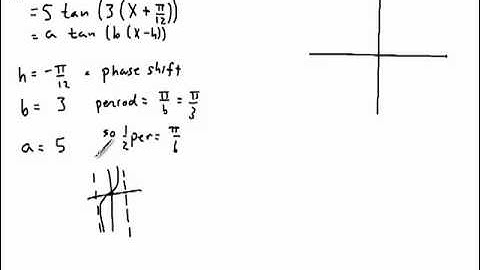 = 5 tan (3 (x + π/12))
= a tan (b (x-h))
h = -π/12 = phase shift
b = 3 period = π/b = π/3
a = 5 so 1/2 per = π/6